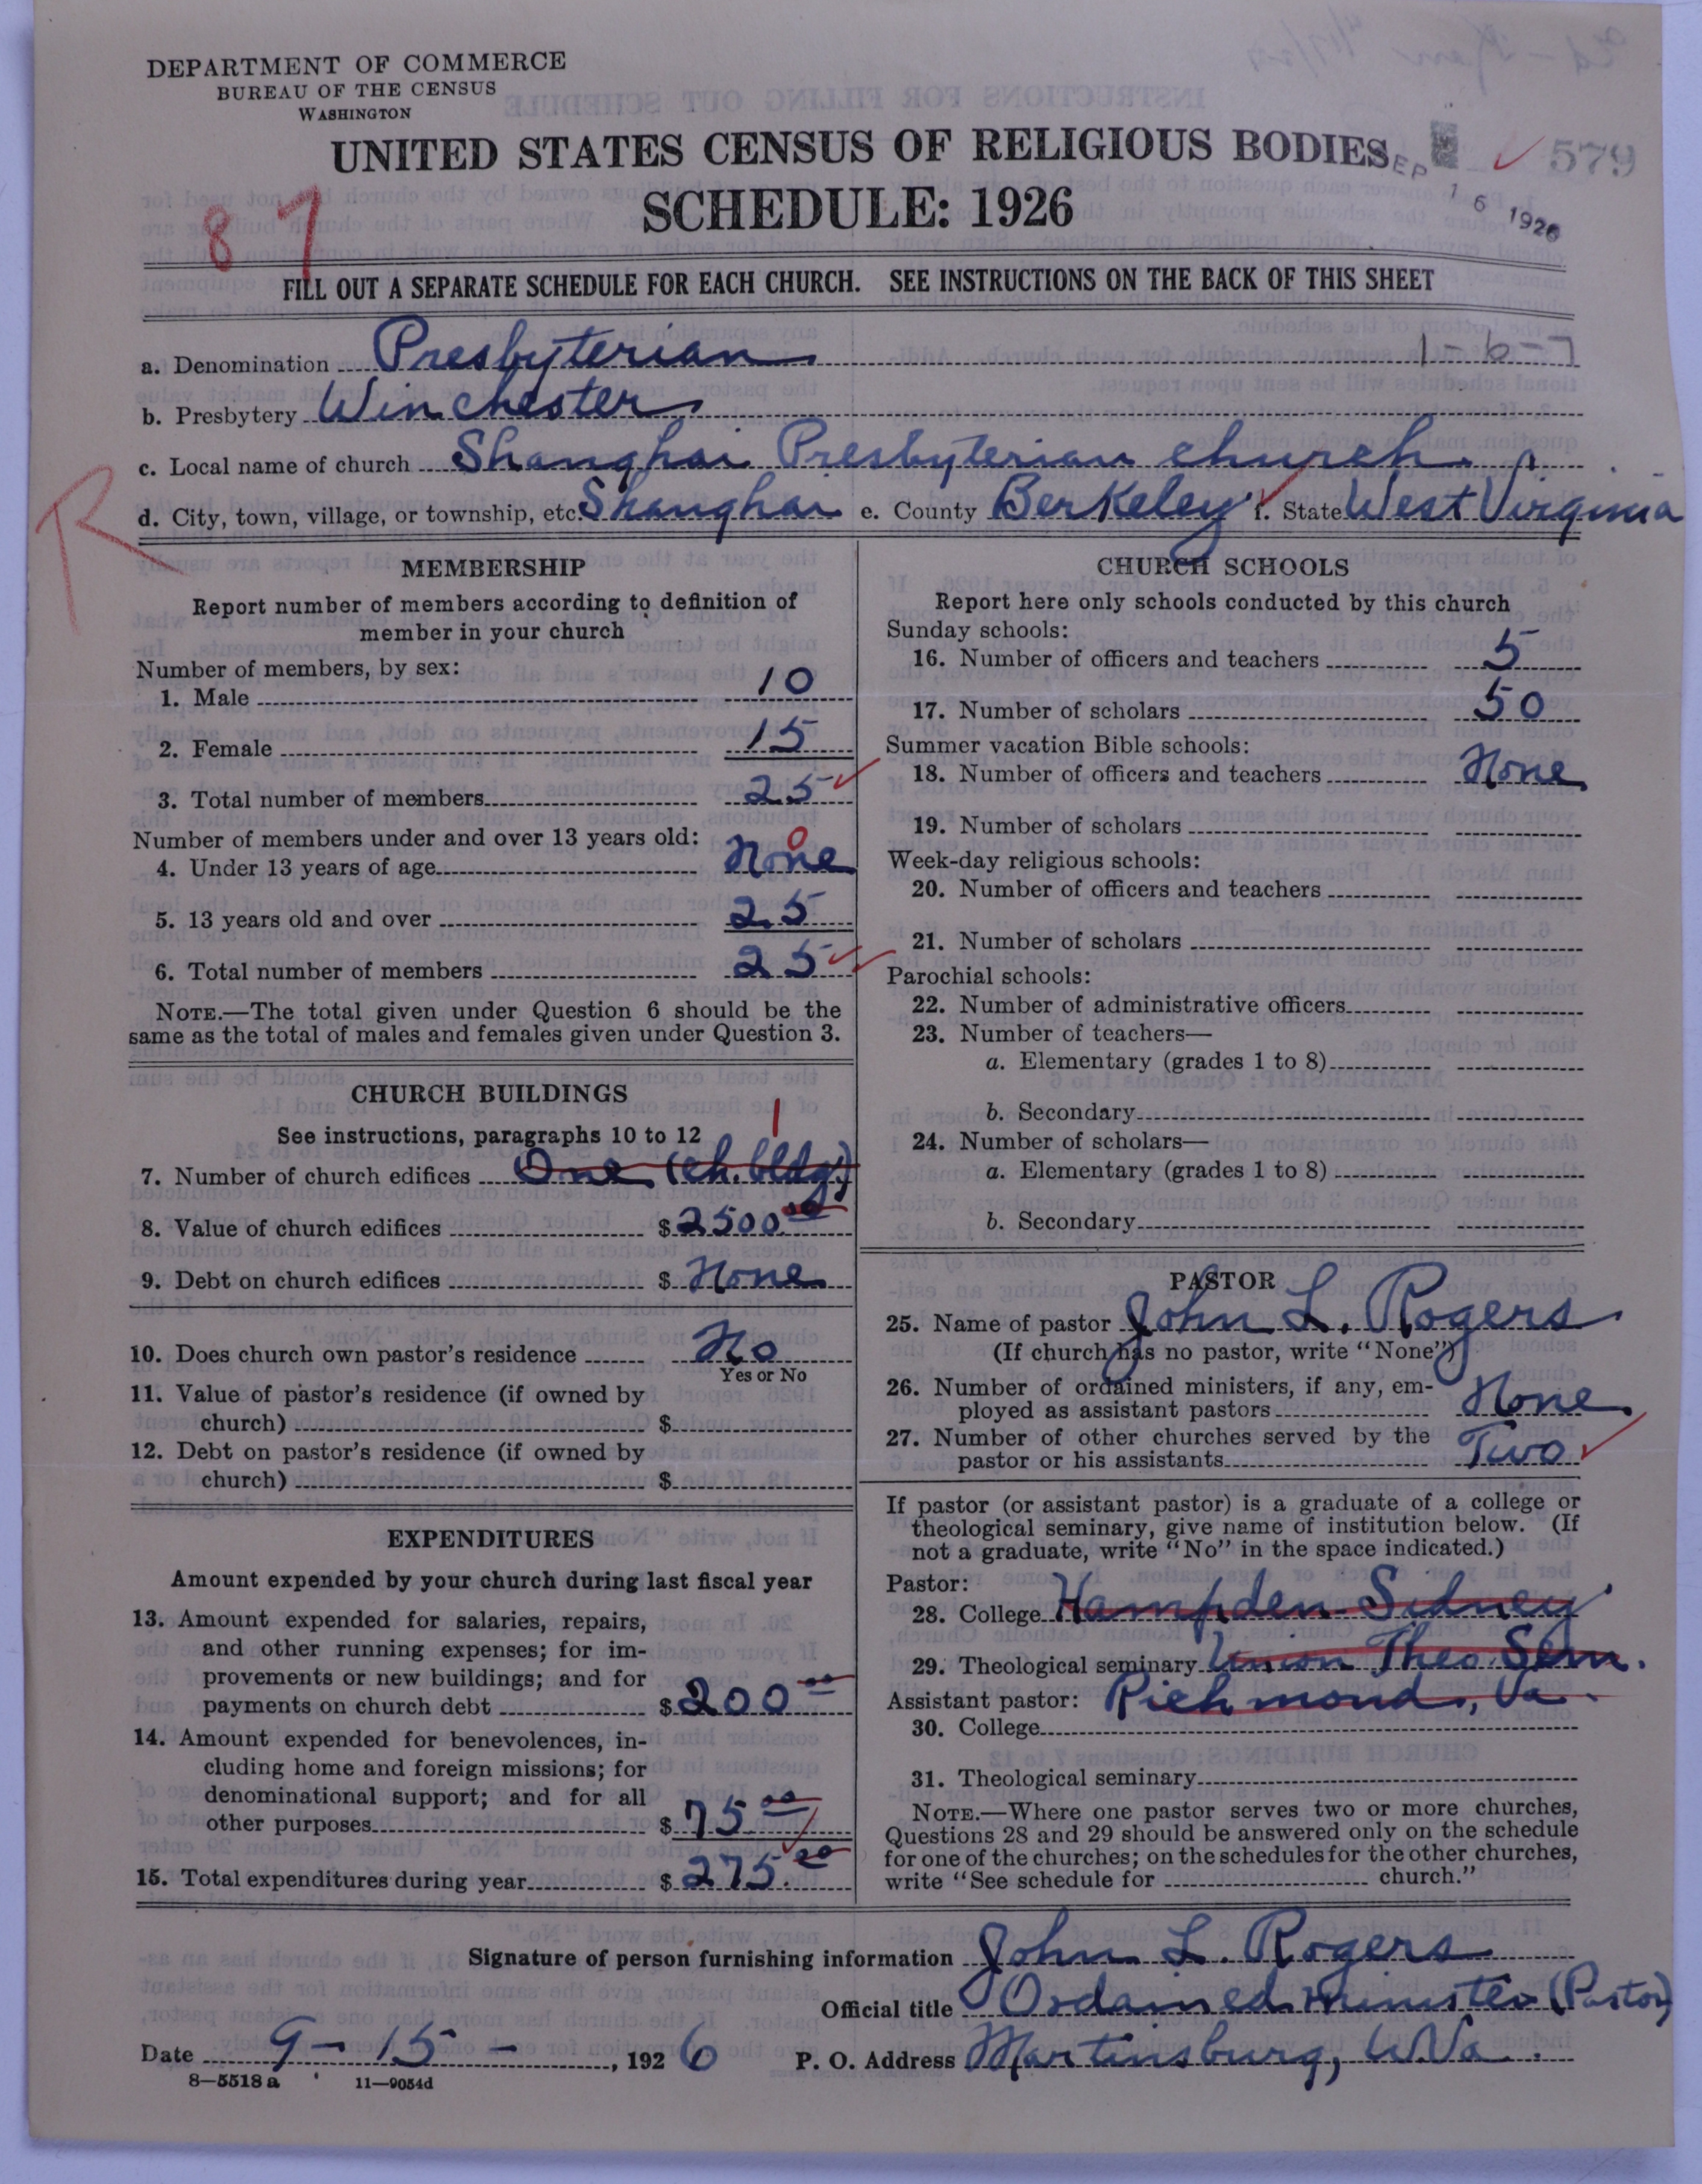 DEPARTMENT OF COMMERCE
BUREAU OF THE CENSUS
WASHINGTON
UNITED STATES CENSUS OF RELIGIOUS BODIES
SCHEDULE: 1926
SEP 16 1926
579
87
FILL OUT A SEPARATE SCHEDULE FOR EACH CHURCH. SEE INSTRUCTIONS ON THE BACK OF THIS SHEET
a. Denomination Presbyterian 1-6-7
b. Presbytery Winchester
c. Local name of church Shanghai Presbyterian church.
d. City, town, village, or township, etc. Shanghai e. County Berkeley f. State West Virginia
R
MEMBERSHIP
Report number of members according to definition of
member in your church
Number of members, by sex:
1. Male 10
2. Female 15
3. Total number of members 25
Number of members under and over 13 years old: 0
4. Under 13 years of age None
5. 13 years old and over 25
6. Total number of members 25
NOTE.—The total given under Question 6 should be the
same as the total of males and females given under Question 3.
CHURCH BUILDINGS
See instructions, paragraphs 10 to 12 1
7. Number of church edifices One (ch. bldg)
8. Value of church edifices $2500.00
9. Debt on church edifices $ None
10. Does church own pastor's residence No
Yes or No
11. Value of pastor's residence (if owned by
church) $
12. Debt on pastor's residence (if owned by
church) $
EXPENDITURES
Amount expended by your church during last fiscal year
13. Amount expended for salaries, repairs,
and other running expenses; for im-
provements or new buildings; and for
payments on church debt $200 00
14. Amount expended for benevolences, in-
cluding home and foreign missions; for
denominational support; and for all
other purposes $ 75 00
15. Total expenditures during year $ 275.00
CHURCH SCHOOLS
Report here only schools conducted by this church
Sunday schools:
16. Number of officers and teachers 5
17. Number of scholars 50
Summer vacation Bible schools:
18. Number of officers and teachers None
19. Number of scholars
Week-day religious schools:
20. Number of officers and teachers
21. Number of scholars
Parochial schools:
22. Number of administrative officers
23. Number of teachers—
a. Elementary (grades 1 to 8)
b. Secondary
24. Number of scholars—
a. Elementary (grades 1 to 8)
b. Secondary
PASTOR
25. Name of pastor John L. Rogers
(If church has no pastor, write "None")
26. Number of ordained ministers, if any, em-
ployed as assistant pastors None
27. Number of other churches served by the
pastor or his assistants Two
If pastor (or assistant pastor) is a graduate of a college or
theological seminary, give name of institution below. (If
not a graduate, write "No" in the space indicated.)
Pastor:
28. College Hampden-Sidney
29. Theological seminary Union Theo. Sem.
Assistant pastor: Richmond, Va.
30. College
31. Theological seminary
NOTE.—Where one pastor serves two or more churches,
Questions 28 and 29 should be answered only on the schedule
for one of the churches; on the schedules for the other churches,
write "See schedule for church."
Signature of person furnishing information John L. Rogers
Official title Ordained minister (Pastor)
Date 9-15-, 1926 P. O. Address Martinsburg, W.Va.
8—5518 a 11—9054d